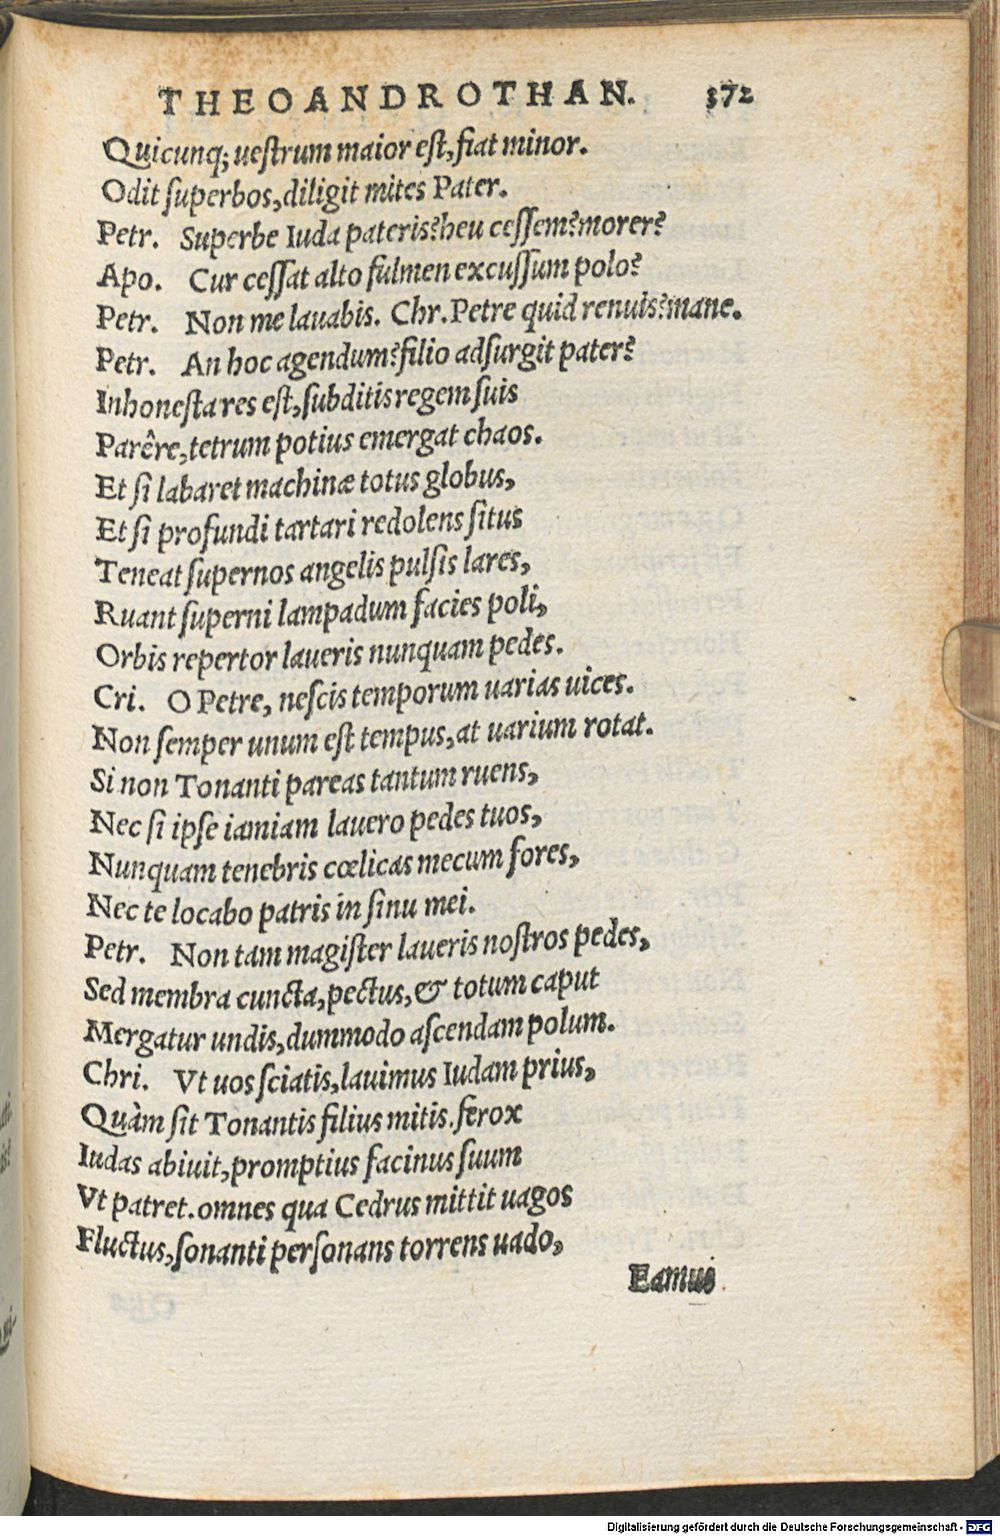 THEOANDROTHAN. 372
Quicunq; uestrum maior est, fiat minor.
Odit superbos, diligit mites Pater.
Petr. Superbe Iuda pateris? heu cessem? morer?
Apo. Cur cessat alto fulmen excussum polo?
Petr. Non me lauabis. Chr. Petre quid renuis? mane.
Petr. An hoc agendum? filio adsurgit pater?
Inhonesta res est, subditis regem suis
Parêre, tetrum potius emergat chaos.
Et si labaret machinæ totus globus,
Et si profundi tartari redolens situs
Teneat supernos angelis pulsis lares,
Ruant superni lampadum facies poli,
Orbis repertor laueris nunquam pedes.
Cri. O Petre, nescis temporum uarias uices.
Non semper unum est tempus, at uarium rotat.
Si non Tonanti pareas tantum ruens,
Nec si ipse iamiam lauero pedes tuos,
Nunquam tenebris cœlicas mecum fores,
Nec te locabo patris in sinu mei.
Petr. Non tam magister laueris nostros pedes,
Sed membra cuncta, pectus, & totum caput
Mergatur undis, dummodo ascendam polum.
Chri. Vt uos sciatis, lauimus Iudam prius,
Quàm sit Tonantis filius mitis. ferox
Iudas abiuit, promptius facinus suum
Vt patret. omnes qua Cedrus mittit uagos
Fluctus, sonanti personans torrens uado,
Eamus
Digitalisierung gefördert durch die Deutsche Forschungsgemeinschaft - DFG